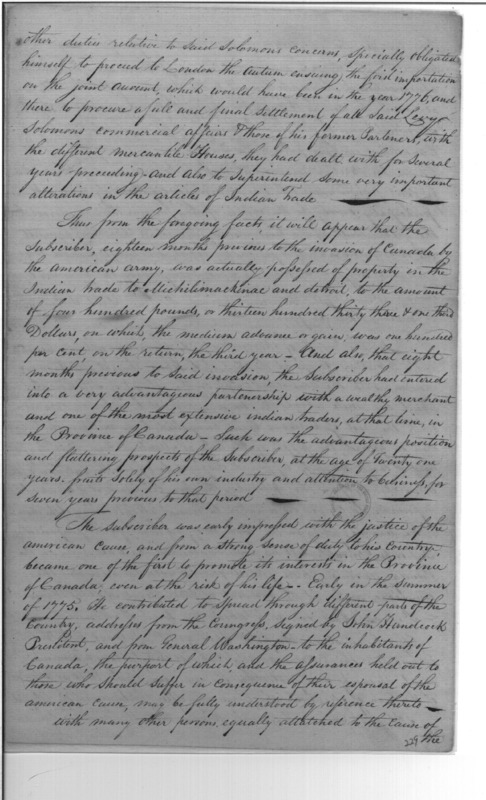 other duties relative to said Solomons concerns, specially obligated
himself to proceed to London the Autum ensuing, the first importation
on the joint account, which would have been in the year 1776, and
there to procure a full and final settlement of all said Levy
Solomons commercial affairs & those of his former Partners, with
the different mercantile Houses, they had dealt with for several
years preceeding - and also to Superintend some very important
alterations in the articles of Indian Trade
Thus from the foregoing facts it will appear that the
Subscriber, eighteen months previous to the invasion of Canada by
the american army, was actually possessed of property in the
Indian trade to Michilimackinac and detroit, to the amount
of four hundred pounds, or thirteen hundred thirty three & one third
Dollars, on which, the medium advance or gain, was one hundred
per cent, on the return, the third year - And also, that eight
months previous to said invasion, the Subscriber had entered
into a very advantageous partenership with a wealthy merchant
and one of the most extensive indian traders, at that time, in
the Province of Canada - Such was the advantageous position
and flattering prospects of the Subscriber, at the age of twenty one
years. fruits solely of his own industry and attention to business, for
seven years previous to that period
The Subscriber was early impressed with the justice of the
american cause, and from a strong sense of duty to his Country
became one of the first to promote its interests in the Province
of Canada even at the risk of his life - Early in the Summer
of 1775. He contributed to spread through different parts of the
Country, addresses from the Congress, signed by John Handcock
President, and from General Washington - to the inhabitants of
Canada, the purport of which, and the assurances held out to
those who should suffer in consequence of their esponsal of the
american cause, may be fully understood by reference thereto -
with many other persons equally attatched to the cause of
229 the